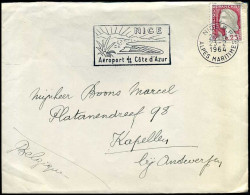 NICE
Aéroport de Côte d'Azur
1964
ALPES MARITIMES
Mijnheer Boons Marcel
Platanendreef 98
Kapellen
bij Antwerpen
Belgique